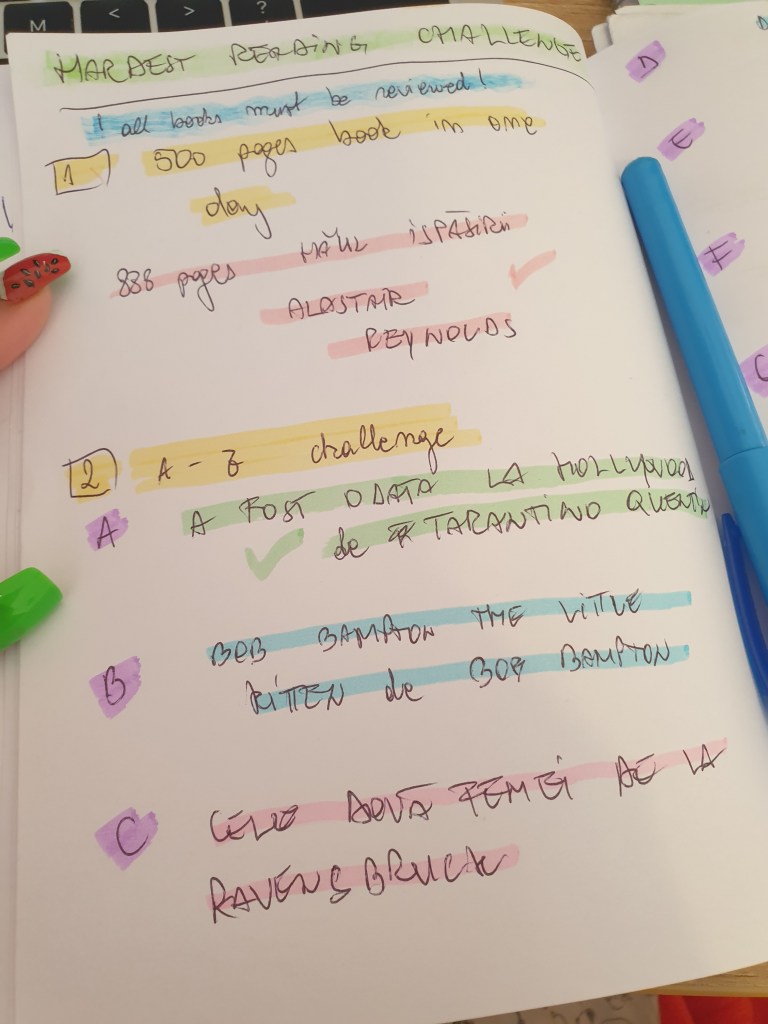 M < > ?
HARDEST READING CHALLENGE
! all books must be reviewed!
1 500 pages book in one
day
888 pages HĂUL ISPĂȘIRII
ALASTAIR
REYNOLDS
2 A - Z challenge
A A FOST ODATĂ LA HOLLYWOOD
de TARANTINO QUENTIN
B BOB BAMPTON THE LITTLE
KITTEN de BOB BAMPTON
C CELE DOUĂ FEMEI DE LA
RAVENSBRUCK
D
E
F